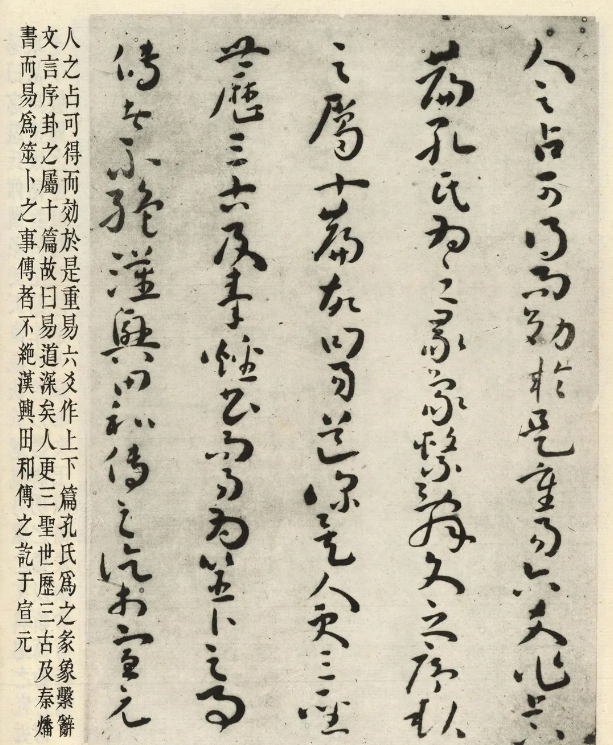 人之占可得而効於是重易六爻作上下
篇孔氏為之彖象繫辭文言序卦
之屬十篇故曰易道深矣人更三聖
世歷三古及秦燔書而易為筮卜之事
傳者不絶漢興田和傳之訖于宣元
人之占可得而効於是重易六爻作上下篇孔氏爲之彖象繫辭
文言序卦之屬十篇故曰易道深矣人更三聖世歷三古及秦燔
書而易爲筮卜之事傳者不絶漢興田和傳之訖于宣元